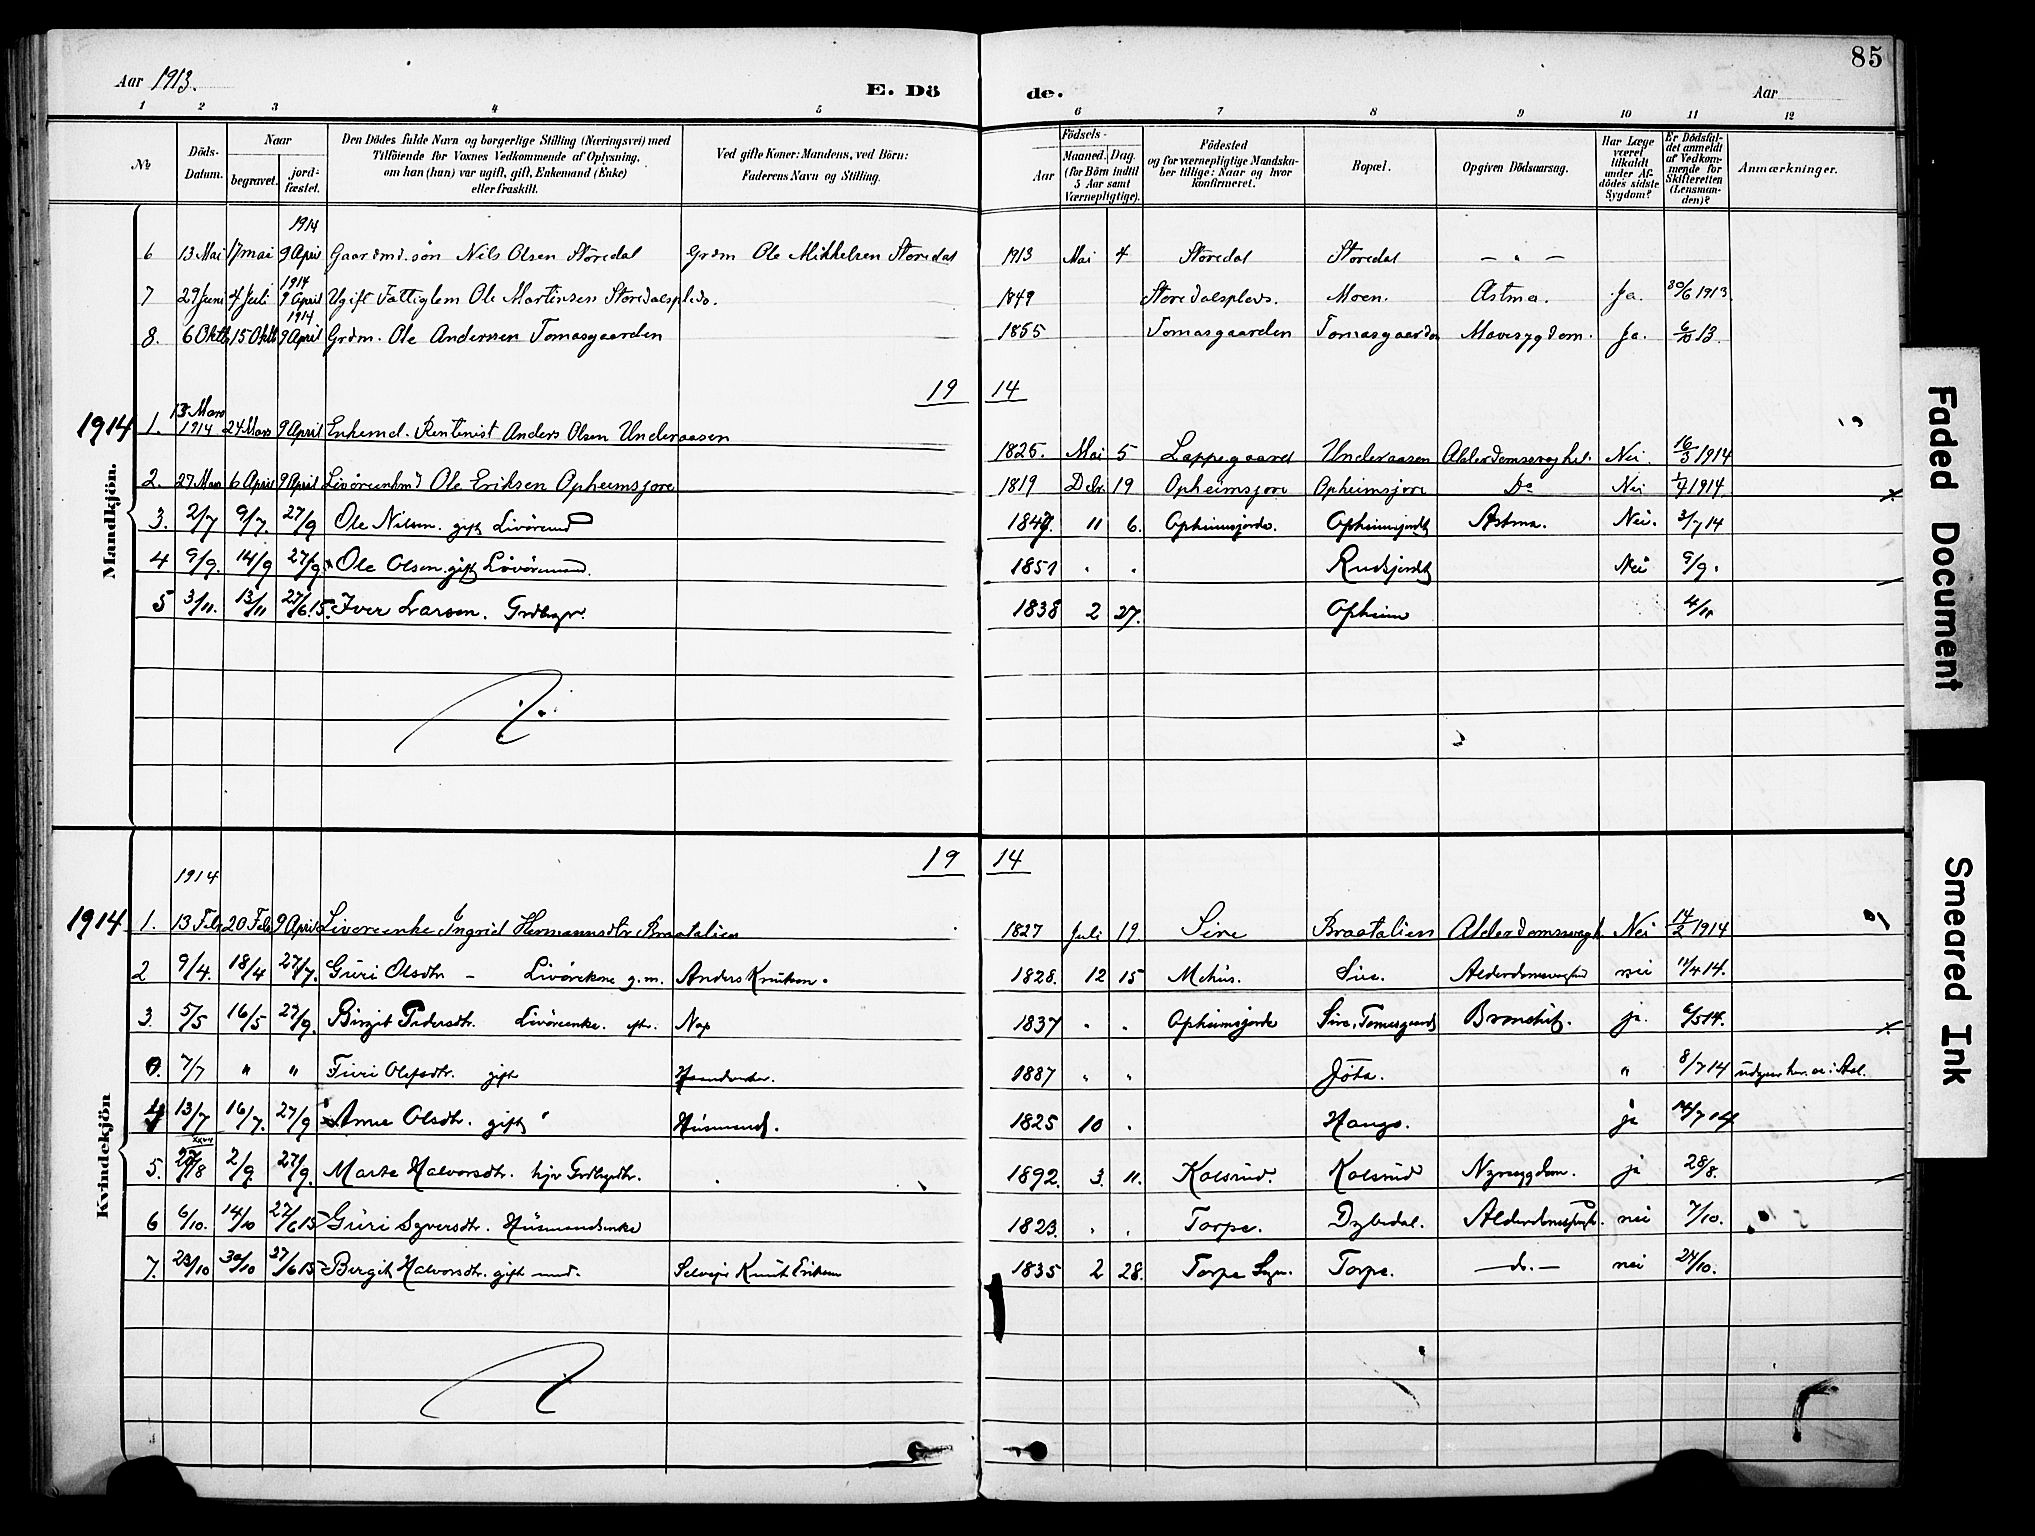 85
Aar 1913.
E. Döde.
Aar
1 2 3 4 5 6 7 8 9 10 11 12
№
Döds-Datum.
Naar
begravet.
jord-fæstet.
Den Dödes fulde Navn og borgerlige Stilling (Næringsvei) med Tilföiende for Voxnes Vedkommende af Oplysning, om han (hun) var ugift, gift, Enkemand (Enke) eller fraskilt.
Ved gifte Koner: Mandens, ved Börn: Faderens Navn og Stilling.
Födsels-
Aar
Maaned. Dag.
(for Börn indtil 5 Aar samt Værnepligtige).
Födested og for værnepligtige Mandska-ber tillige: Naar og hvor konfirmeret.
Bopæl.
Opgiven Dödsaarsag.
Har Læge været tilkaldt under Af-dödes sidste Sygdom?
Er Dödsfal-det anmeldt af Vedkom-mende for Skifteretten (Lensman-den)?
Anmærkninger.
Mandkjön.
1914
6 13 Mai 17 mai 9 April Gaardmd. søn Nils Olsen Storedal Grdm Ole Mikkelsen Storedal 1913 Mai 4 Storedal Storedal — " —
1914
7 29 Juni 4 Juli 9 April Ugift Fattiglem Ole Martinsen Storedalsplds. 1849 Storedalsplads. Moen. Astma. Ja. 30/6 1913
1914
8. 6 Oktb 15 Oktb 9 April Grdm. Ole Andersen Tomasgaarden 1855 Tomasgaarden Tomasgaarden Mavesygdom. Ja. 6/10 13.
19 14
1914 1. 13 Mars 1914 24 Mars 9 April Enkemd. Rentenist Anders Olsen Underaasen 1825. Mai 5 Lappegaard Underaasen Alderdomssvaghet. Nei. 16/3 1914
2. 27 Mars 6 April 9 April Livørenkmd Ole Eriksen Opheimsjore 1819 Debr. 19 Opheimsjore Opheimsjore Do Nei 1/4 1914
3. 2/7 9/7. 27/9 Ole Nilsen. gift Livöremd 1847. 11 6. Opheimsjorde. Opheimsjordet Astma. Nei. 3/7 14
4 9/9. 14/9 27/9. Ole Olsen. gift Livöremand. 1851 " " Rudsjordet Nei 9/9.
5 3/11. 13/11 27/6.15. Iver Larsen. Grdbrgr. 1838 2 27. Opheim 4/11
Kvindekjön
19 14
1914
1914 1. 13 Feb 20 Feb 9 April Livøreenke Ingrid Hermannsdtr Braatalien 1827 Juli 19. Sire Braatalien Alderdomssvagh Nei 14/2 1914
2 9/4. 18/4 27/7. Guri Olsdtr — Livörekone g.m. Anders Knutsen. 1828. 12 15 Mehus. Sire. Alderdomssvaghed nei 11/4 14.
3. 5/5 16/5 27/9. Birgit Pedersdtr. Livöreenke. eftr. 1837 " " Opheimsjorde Sire, Tomasgaard Bronchit. ja. 6/5 14.
0. 7/7 " " Turi Olefsdtr. gift 1887 " " Jöto. " 8/7 14
4 13/7 16/7. 27/9 Anne Olsdtr. gift Husmand. 1825 10 . Haugo. ja 14/7 14
5. 27/8 2/9. 27/9. Marte Halvorsdtr. hjv Grdbrgrdtr. 1892. 3. 11. Kolsrud. Kolsrud Nyresygdom. ja 28/8.
6 6/10. 14/10 27/6 15 Guri Syversdtr. Husmandsenke 1823. . . Torpe. Dybedal. nei 7/10.
7. 23/10 30/10 27/6 15 Birgit Halvorsdtr. gift md. Selveier Knut Eriksen 1835 2 28. Torpe Sogn. Torpe. —do.— nei 24/10.
Faded Document
Smeared Ink